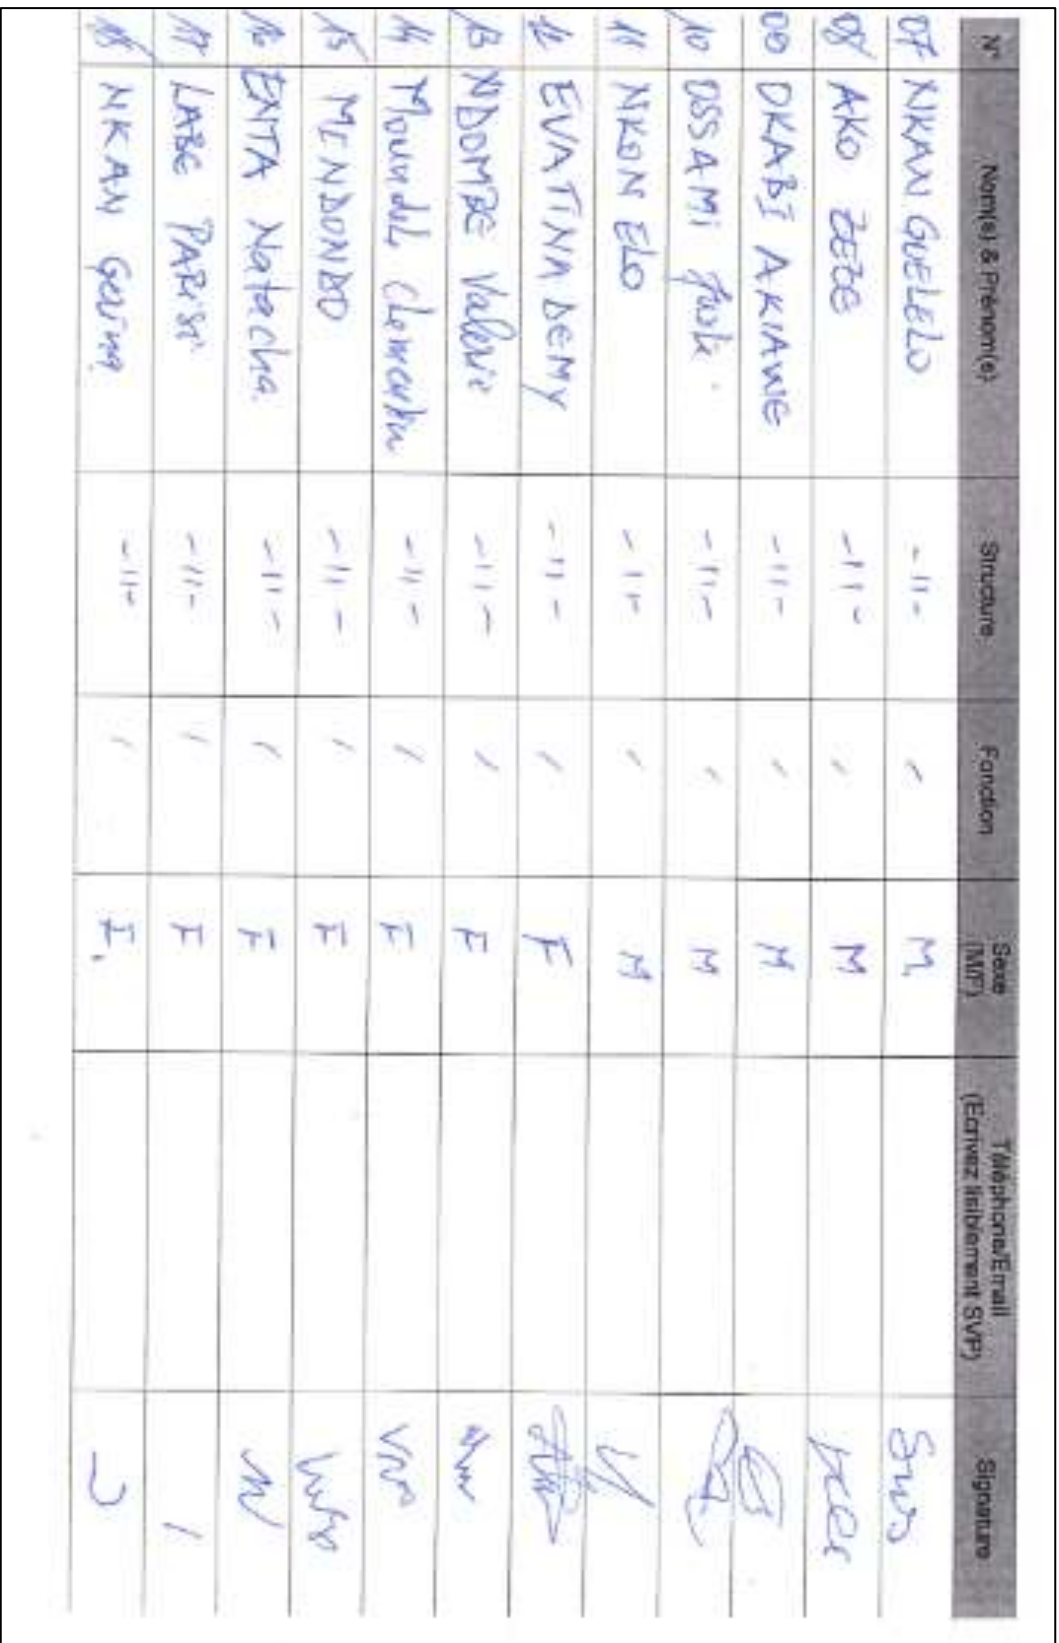 N° Nom(s) & Prénom(s) Structure Fonction Sexe (M/F) Téléphone/Email (Ecrivez lisiblement SVP) Signature
07 NKAN GUELELO -11- M
08 AKO ZEZE -11- M
00 OKABI AKIAWE -11- M
10 OSSAMI -11- M
11 NKON ELO -11- M
12 EVATINA DEMY -11- F
13 NDOMBE Valerie -11- F
14 -11- F
15 MENDONDO -11- F
16 ENTA Natacha -11- F
17 LABE PARISI -11- F
18 NKAN -11- F.